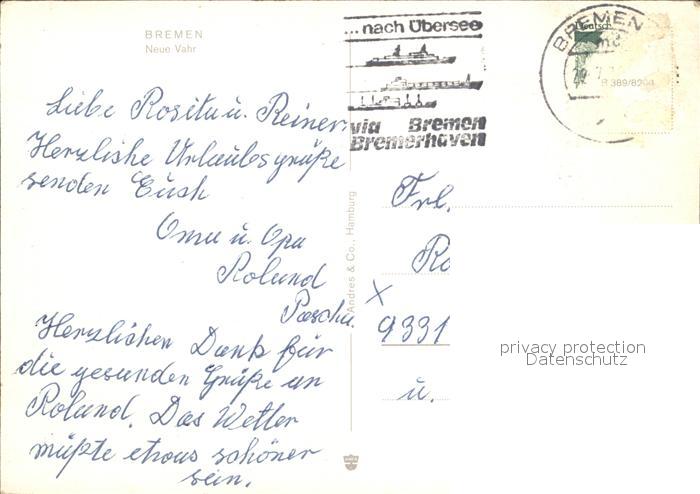 BREMEN
Neue Vahr
... nach Übersee
via Bremen
Bremerhaven
BREMEN
Deutsch
R 389/8204
Liebe Rosita u. Reiner.
Herzliche Urlaubsgrüße
senden Euch
Oma u. Opa
Roland
Pascha.
Herzlichen Dank für
die gesunden Grüße an
Roland. Das Wetter
müßte etwas schöner
sein.
Andres & Co., Hamburg
Frl.
Ro
x
9331
u.
privacy protection
Datenschutz